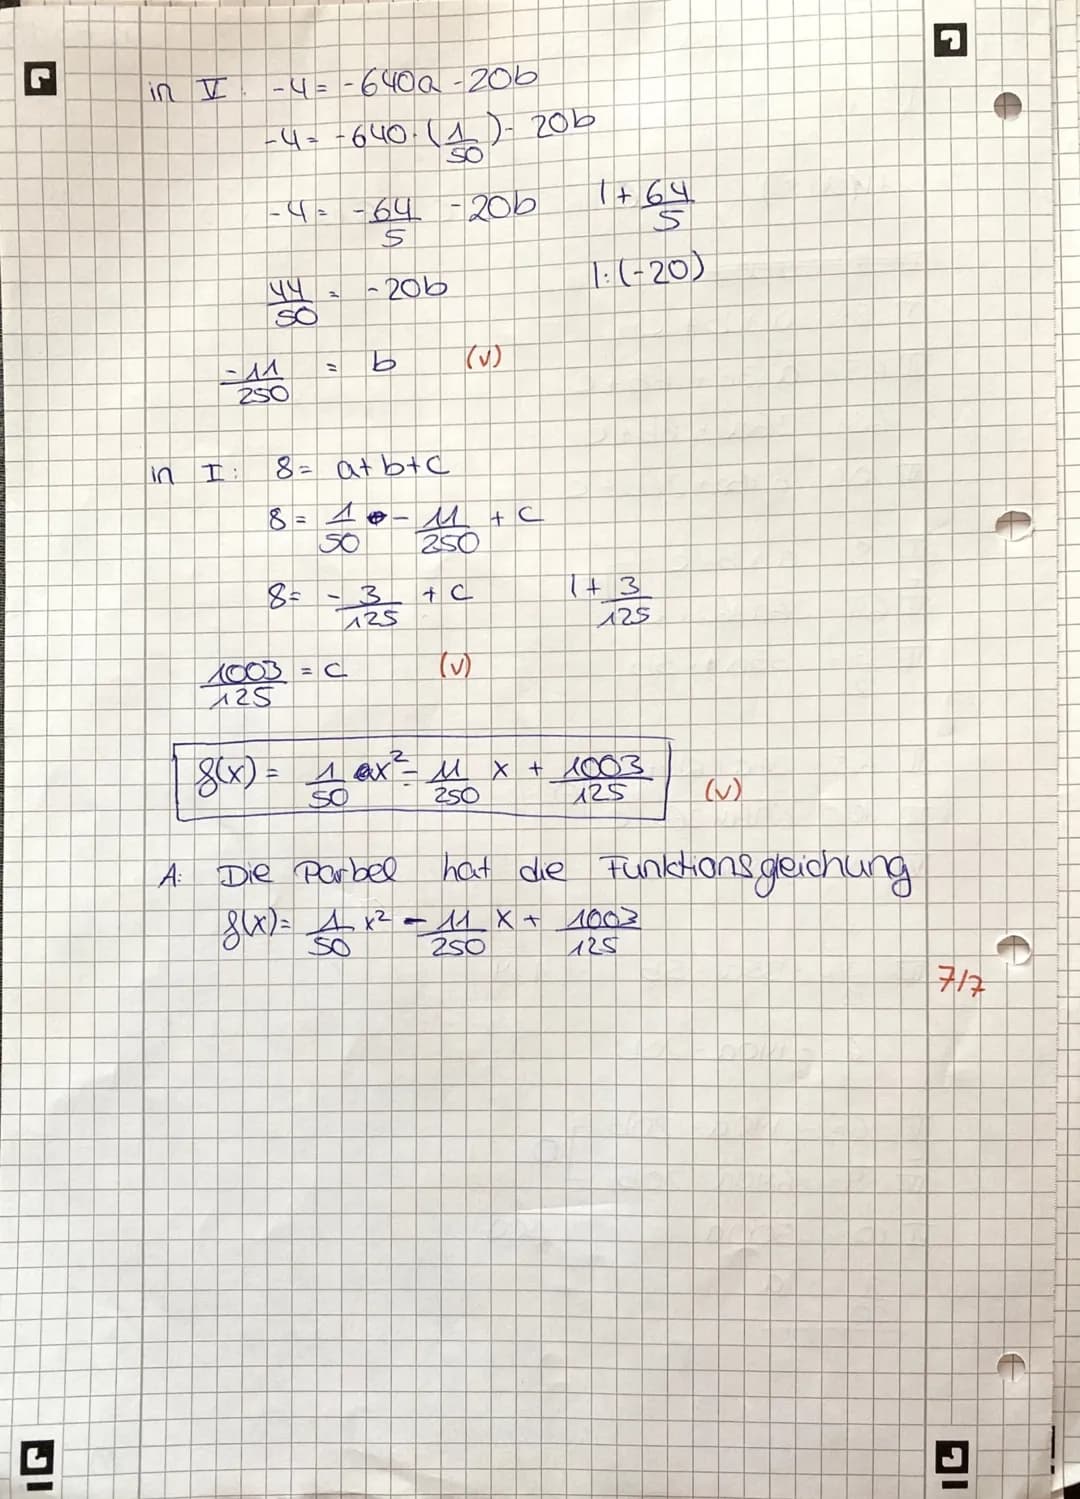 in V: -4 = -640a - 20b
-4 = -640 · (1/50) - 20b
-4 = -64/5 - 20b |+ 64/5
44/50 = -20b |:(-20)
-11/250 = b (v)
in I: 8 = a + b + c
8 = 1/50 - 11/250 + c
8 = - 3/125 + c |+ 3/125
1003/125 = c (v)
f(x) = 1/50 x² - 11/250 x + 1003/125 (v)
A: Die Parbel hat die Funktionsgleichung
f(x) = 1/50 x² - 11/250 x + 1003/125
7/7